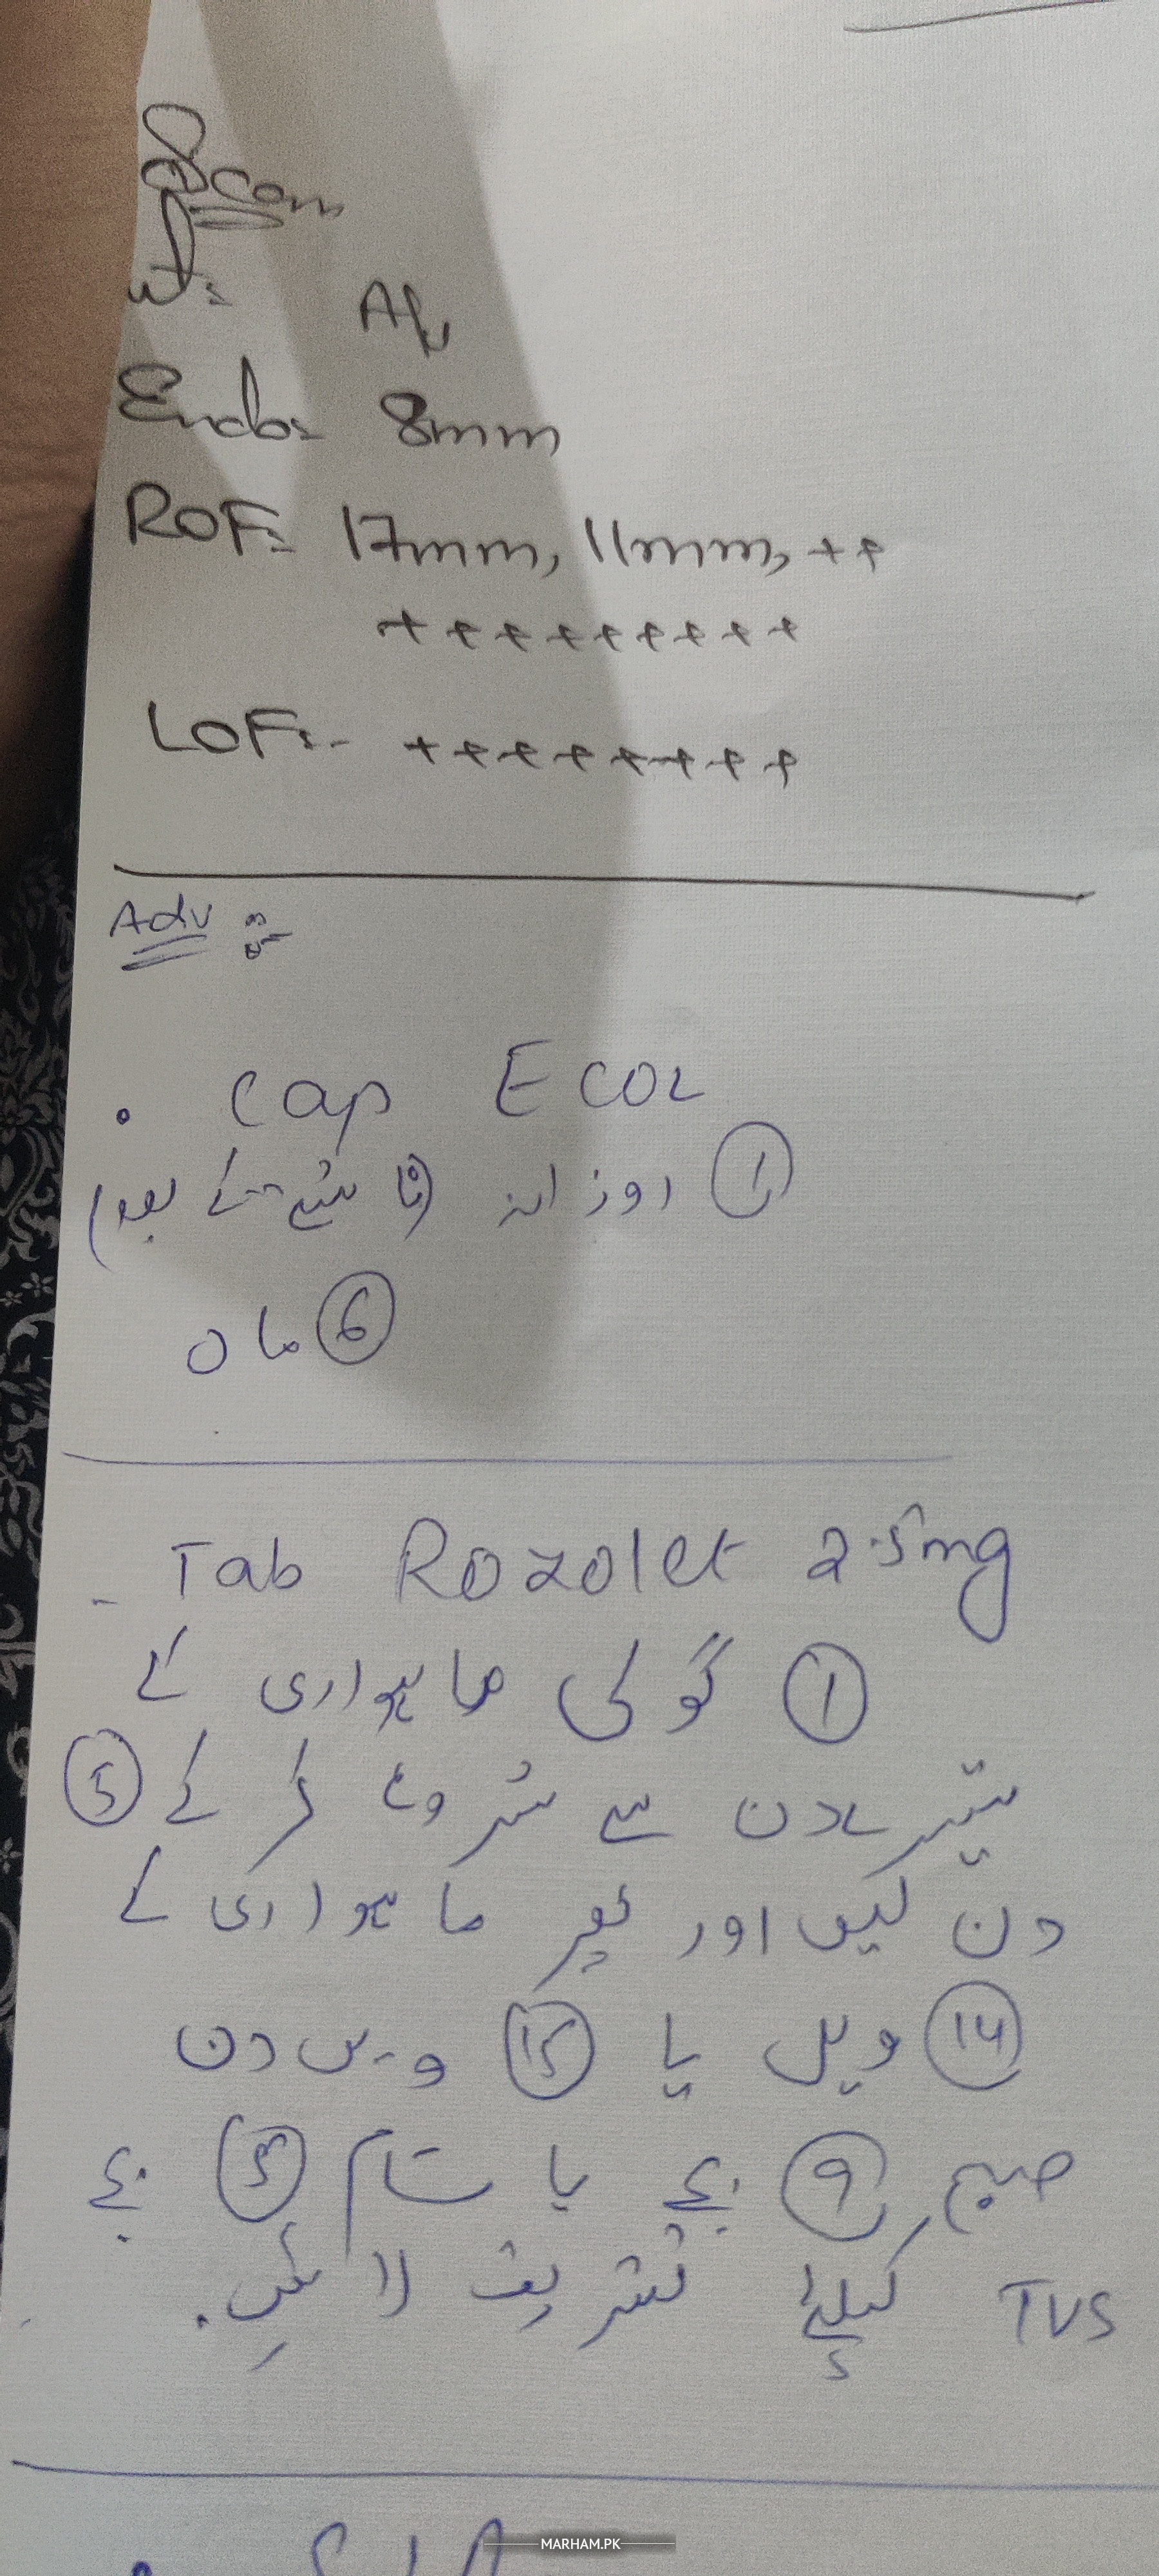 Scan
ut:- A/v
Endo:- 8mm
ROF:- 17mm, 11mm, ++
+++++++++
LOF:- ++++++++
Adv :-
• Cap ECOL
① روزانہ (ناشتے کے بعد)
⑥ ماہ
- Tab Rozolet 2.5mg
① گولی ماہواری کے
تیسرے دن سے شروع کر کے ⑤
دن لیں اور پھر ماہواری کے
⑭ ویں یا ⑮ ویں دن
صبح ⑨ بجے یا شام ⑤ بجے
TVS کیلئے تشریف لائیں.
MARHAM.PK